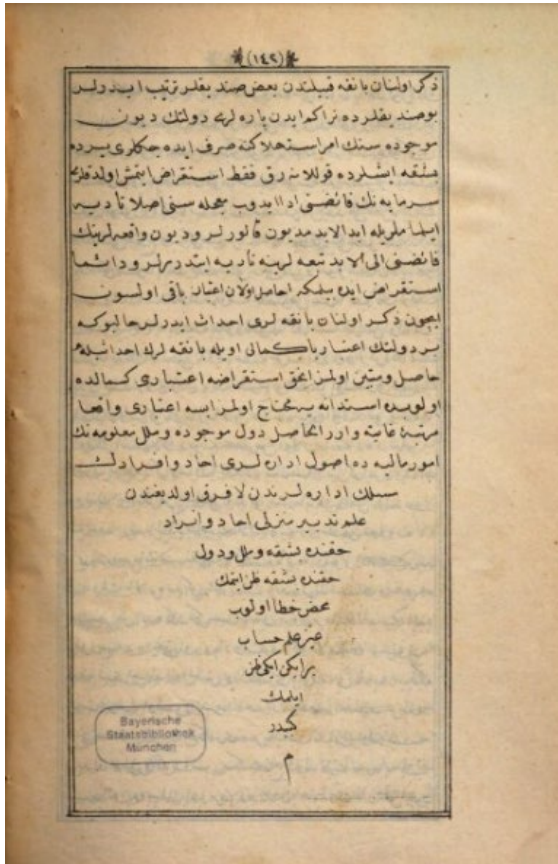 (١٤٢)
ذكر اولنان بانقه قبيلندن بعض صندیقلر ترتیب ایدرلر
بو صندیقلرده تراکم ایدن پاره لری دولتك دیون
موجوده سنك امر استهلاکنه صرف ایده جکلری یرده
بشقه ایشلرده قوللانه رق فقط استقراض ایتمش اولدقلری
سرمایه نك فائضنی ادا ایدوب مبحله سنی اصلا تأدیه
ایلماملریله ابد الابد مدیون قالورلر و دیون واقعه لرینك
فائضنی الی الابد تبعه لرینه تأدیه ایتدررلر و دائما
استقراض ایده بیلمکه حاصل اولان اعتبار باقی اولسون
ایچون ذکر اولنان بانقه لری احداث ایدرلر حالبوکه
بر دولتك اعتبار باکمالی اویله بانقه لرك احداثیله
حاصل و متین اولمز انجق استقراضه اعتباری کمالده
اولوبده استدانه یه محتاج اولمز ایسه اعتباری واقعا
مرتبهٔ غایته وارر الحاصل دول موجوده و ملل معلومه نك
امور مالیه ده اصول اداره لری احاد و افرادك
مسلك اداره لرندن لا فرق اولدیغندن
علم تدبیر منزلی احاد و افراد
حقنده بشقه و ملل و دول
حقنده بشقه ظن ایتمك
محض خطا اولوب
عین علم حساب
بر ایکن ایکی ظن
ایلمك
کبیدر
م
Bayerische
Staatsbibliothek
München